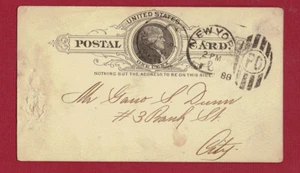 UNITED STATES
POSTAL CARD
ONE CENT
NOTHING BUT THE ADDRESS TO BE ON THIS SIDE.
NEW YOR
2 PM
88
Mr Gano S. Dunn
#3 Bank St.
City.